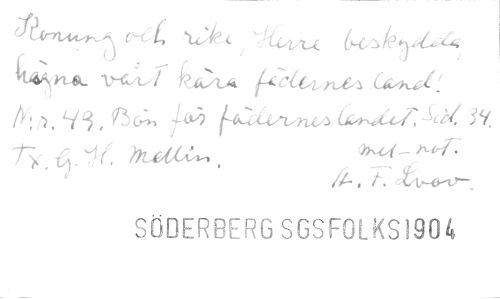 Konung och rike, Herre beskydda,
hägna vårt kära fädernesland!
N:r. 49. Bön för fäderneslandet. Sid. 34.
Tx. G. H. Mellin. mel-not.
A. F. Lvov.
SÖDERBERG SGSFOLKS1904